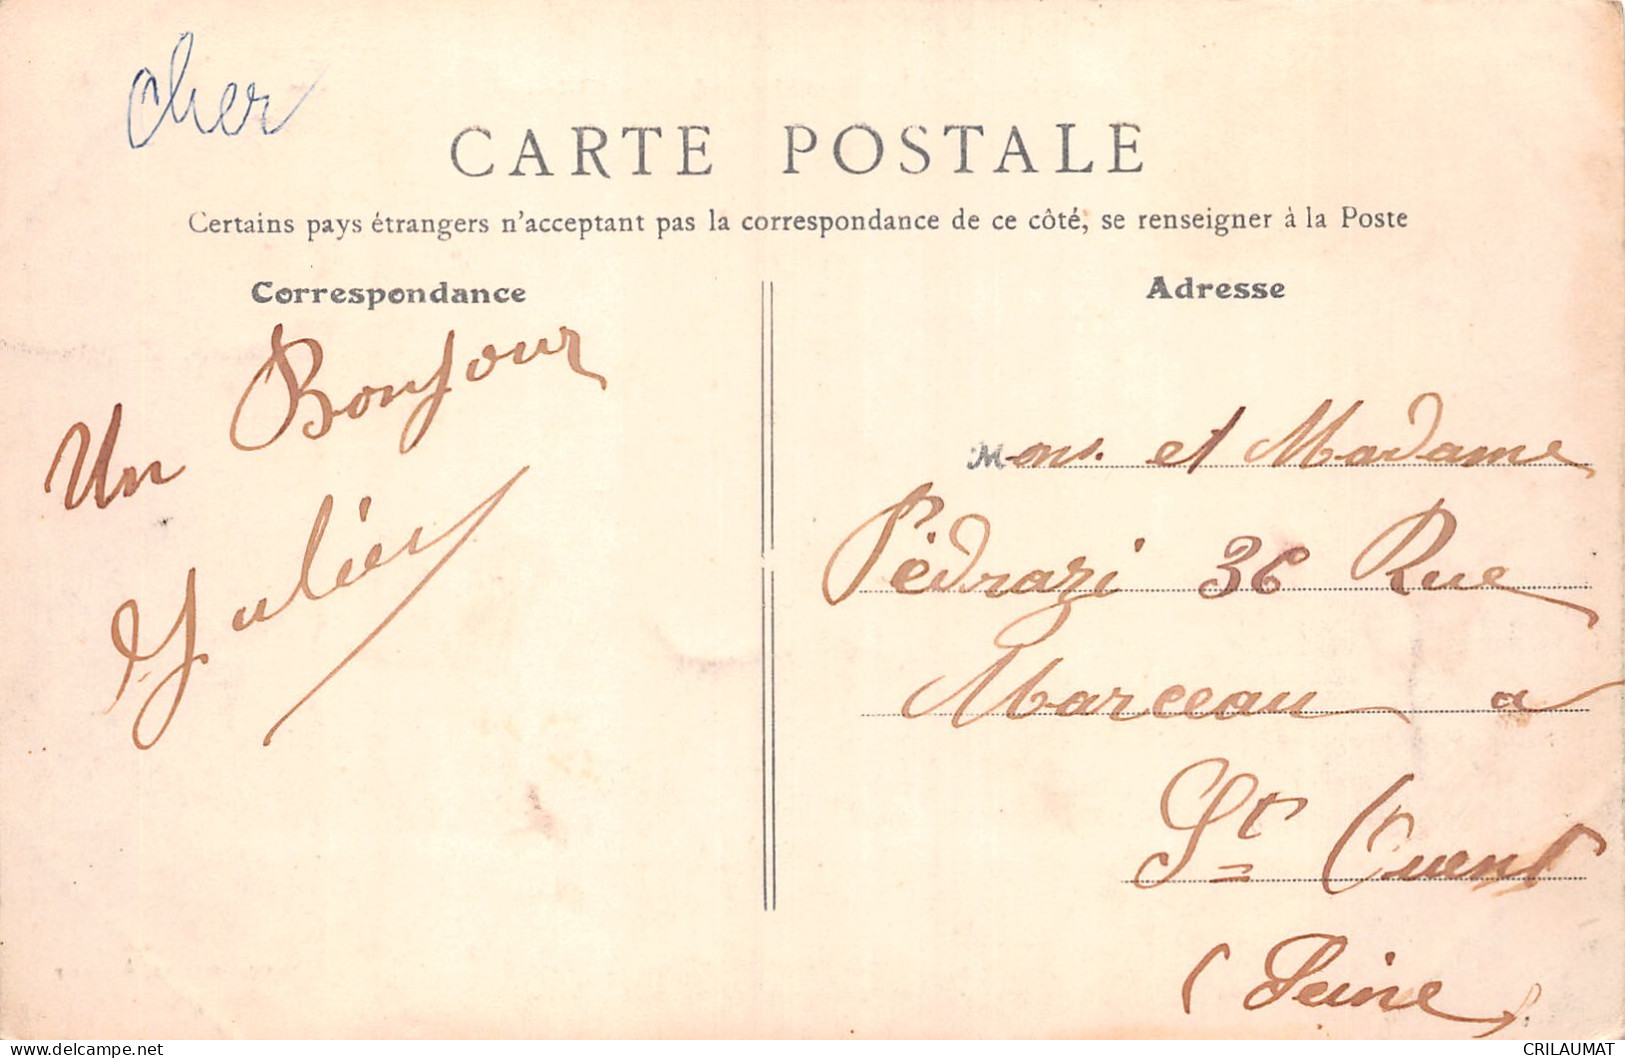 Cher
CARTE POSTALE
Certains pays étrangers n'acceptant pas la correspondance de ce côté, se renseigner à la Poste
Correspondance
Un Bonjour
Julien
Adresse
Mons. et Madame
Pédrazi 36 Rue
Marceau a
St Ouent
(Seine)
CRILAUMAT